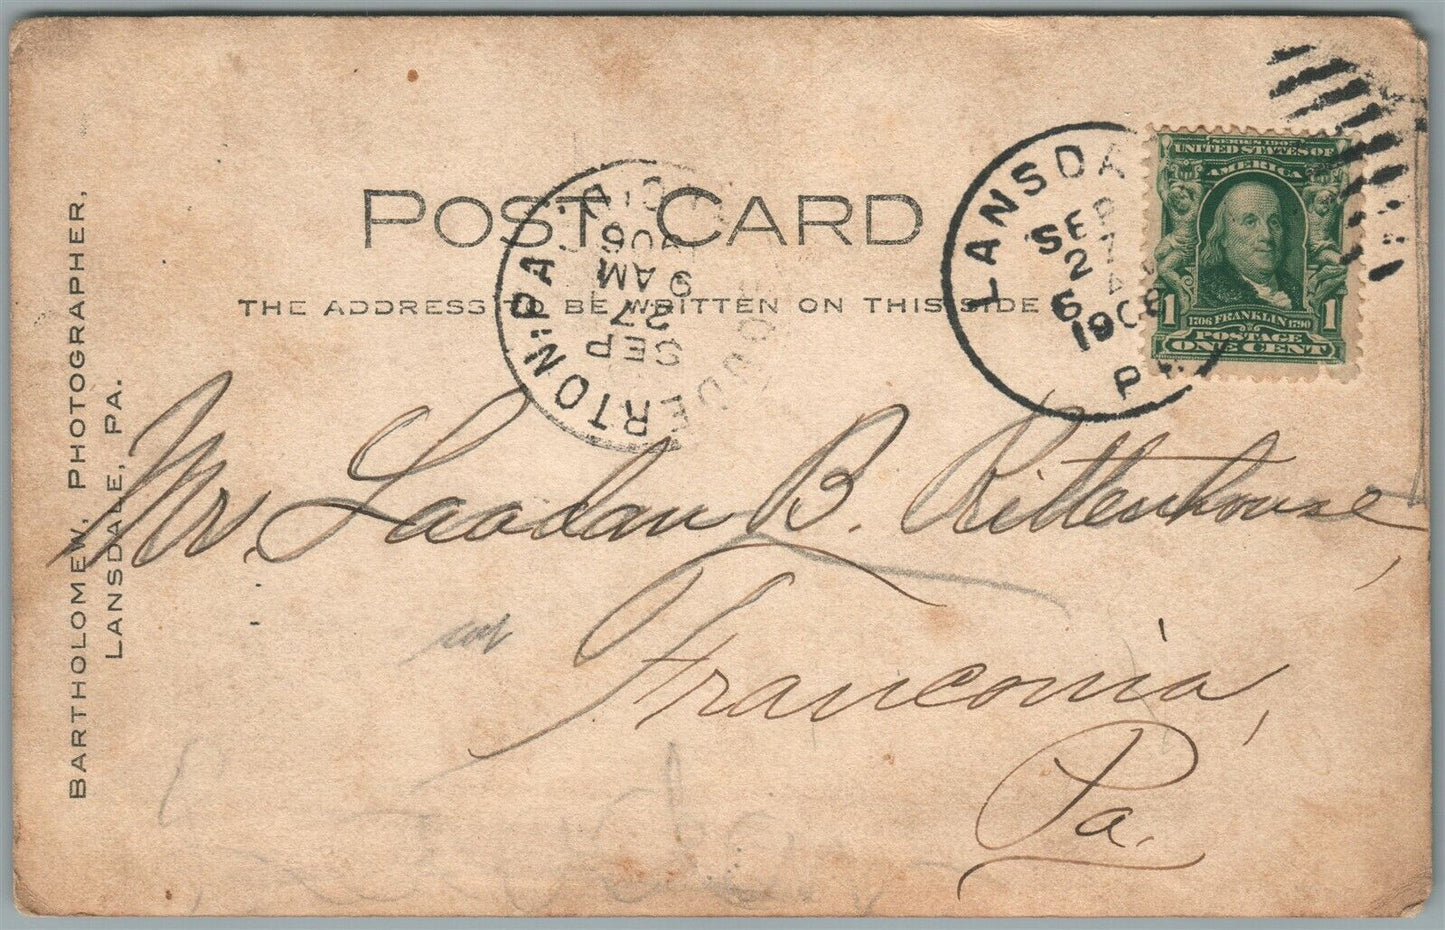 POST CARD
THE ADDRESS TO BE WRITTEN ON THIS SIDE
BARTHOLOMEW, PHOTOGRAPHER,
LANSDALE, PA.
DERTON, PA.
SEP
27
9 AM
'06
REC'D.
LANSDA
SEP
27
6
1906
PA
SERIES 1902
UNITED STATES OF
AMERICA
1 1706 FRANKLIN 1790 1
POSTAGE
ONE CENT
Mr. Laadan B. Rittenhouse,
Franconia,
Pa.